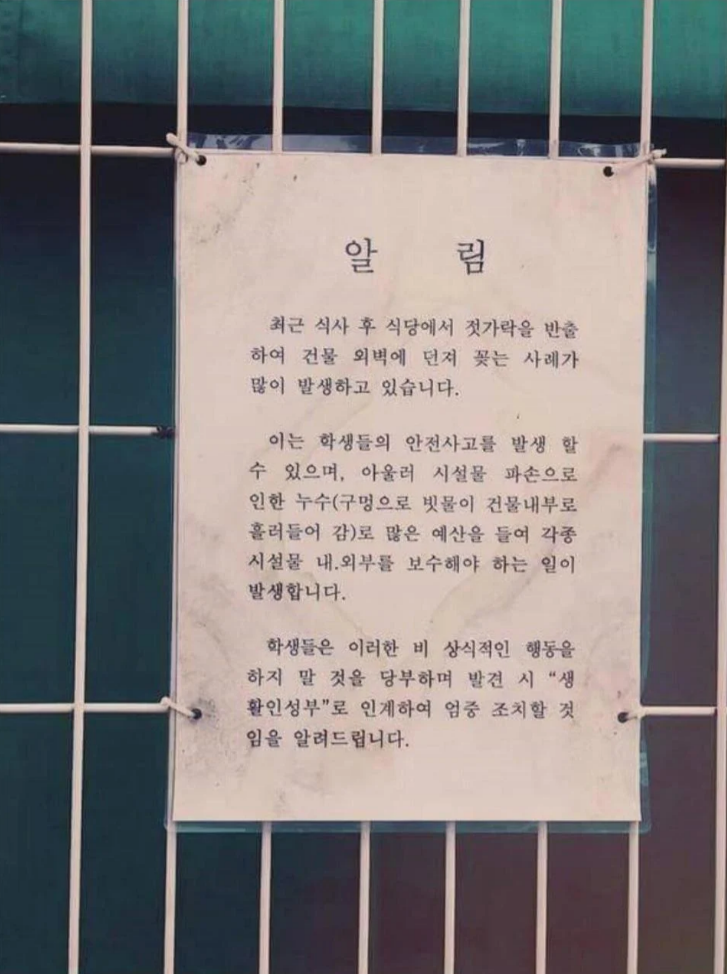 알 림
최근 식사 후 식당에서 젓가락을 반출
하여 건물 외벽에 던져 꽂는 사례가
많이 발생하고 있습니다.
이는 학생들의 안전사고를 발생 할
수 있으며, 아울러 시설물 파손으로
인한 누수(구멍으로 빗물이 건물내부로
흘러들어 감)로 많은 예산을 들여 각종
시설물 내.외부를 보수해야 하는 일이
발생합니다.
학생들은 이러한 비 상식적인 행동을
하지 말 것을 당부하며 발견 시 “생
활인성부”로 인계하여 엄중 조치할 것
임을 알려드립니다.